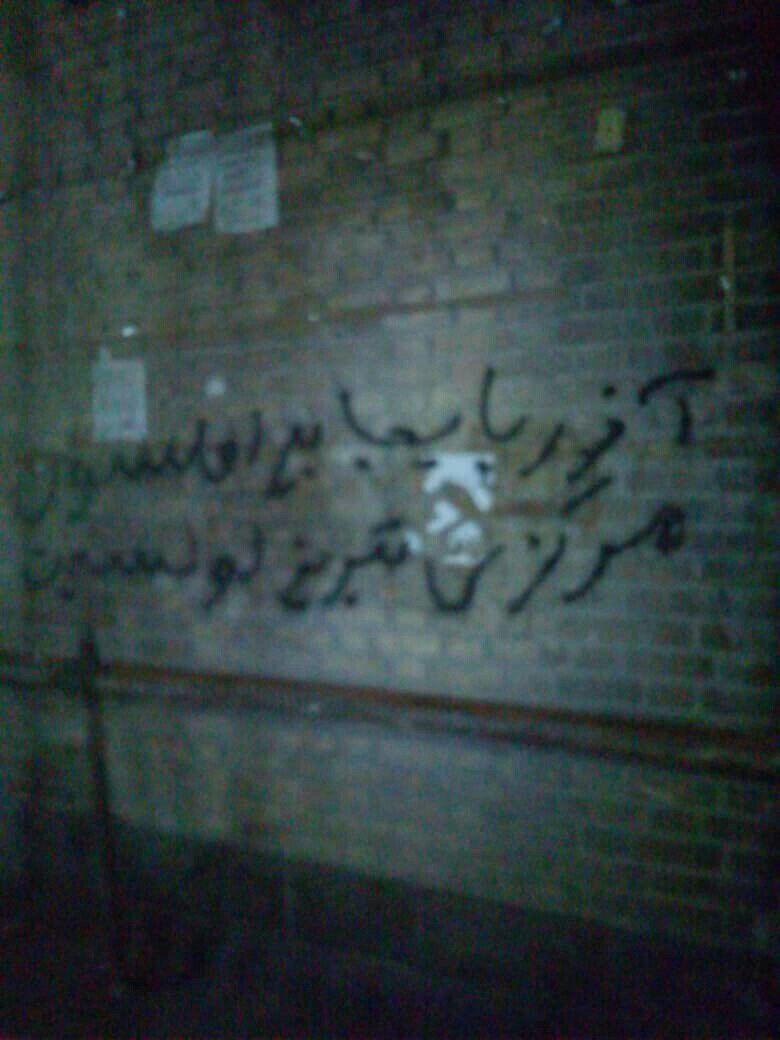 آذربایجان بیر اولسون
مرکزی تبریز اولسون